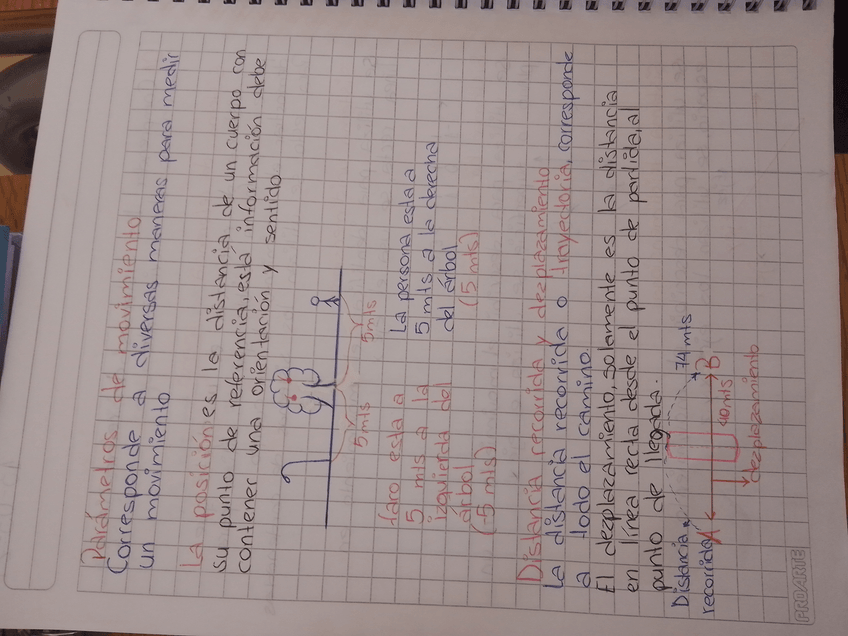 Parámetros de movimiento
Corresponde a diversas maneras para medir
un movimiento
La posición es la distancia de un cuerpo con
su punto de referencia, está información debe
contener una orientación y sentido
5 mts
5 mts
faro esta a
5 mts a la
izquierda del
árbol
(-5 mts)
La persona esta a
5 mts a la derecha
del árbol
(5 mts)
Distancia recorrida y dezplazamiento
La distancia recorrida o trayectoria, corresponde
a todo el camino
El dezplazamiento, solamente es la distancia
en línea recta desde el punto de partida, al
punto de llegada.
Distancia
recorrida
74 mts
A
B
40 mts
dezplazamiento
PROARTE